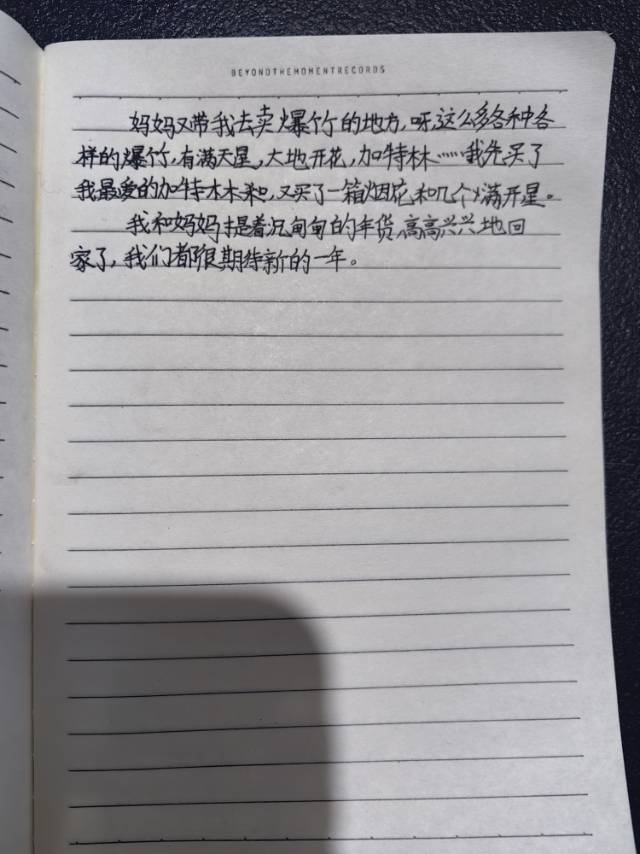 BEYONDTHEMOMENTRECORDS
妈妈又带我去卖爆竹的地方,呀,这么多各种各
样的爆竹,有满天星,大地开花,加特林……我先买了
我最爱的加特林,又买了一箱烟花和几个满开星。
我和妈妈提着沉甸甸的年货,高高兴兴地回
家了,我们都很期待新的一年。